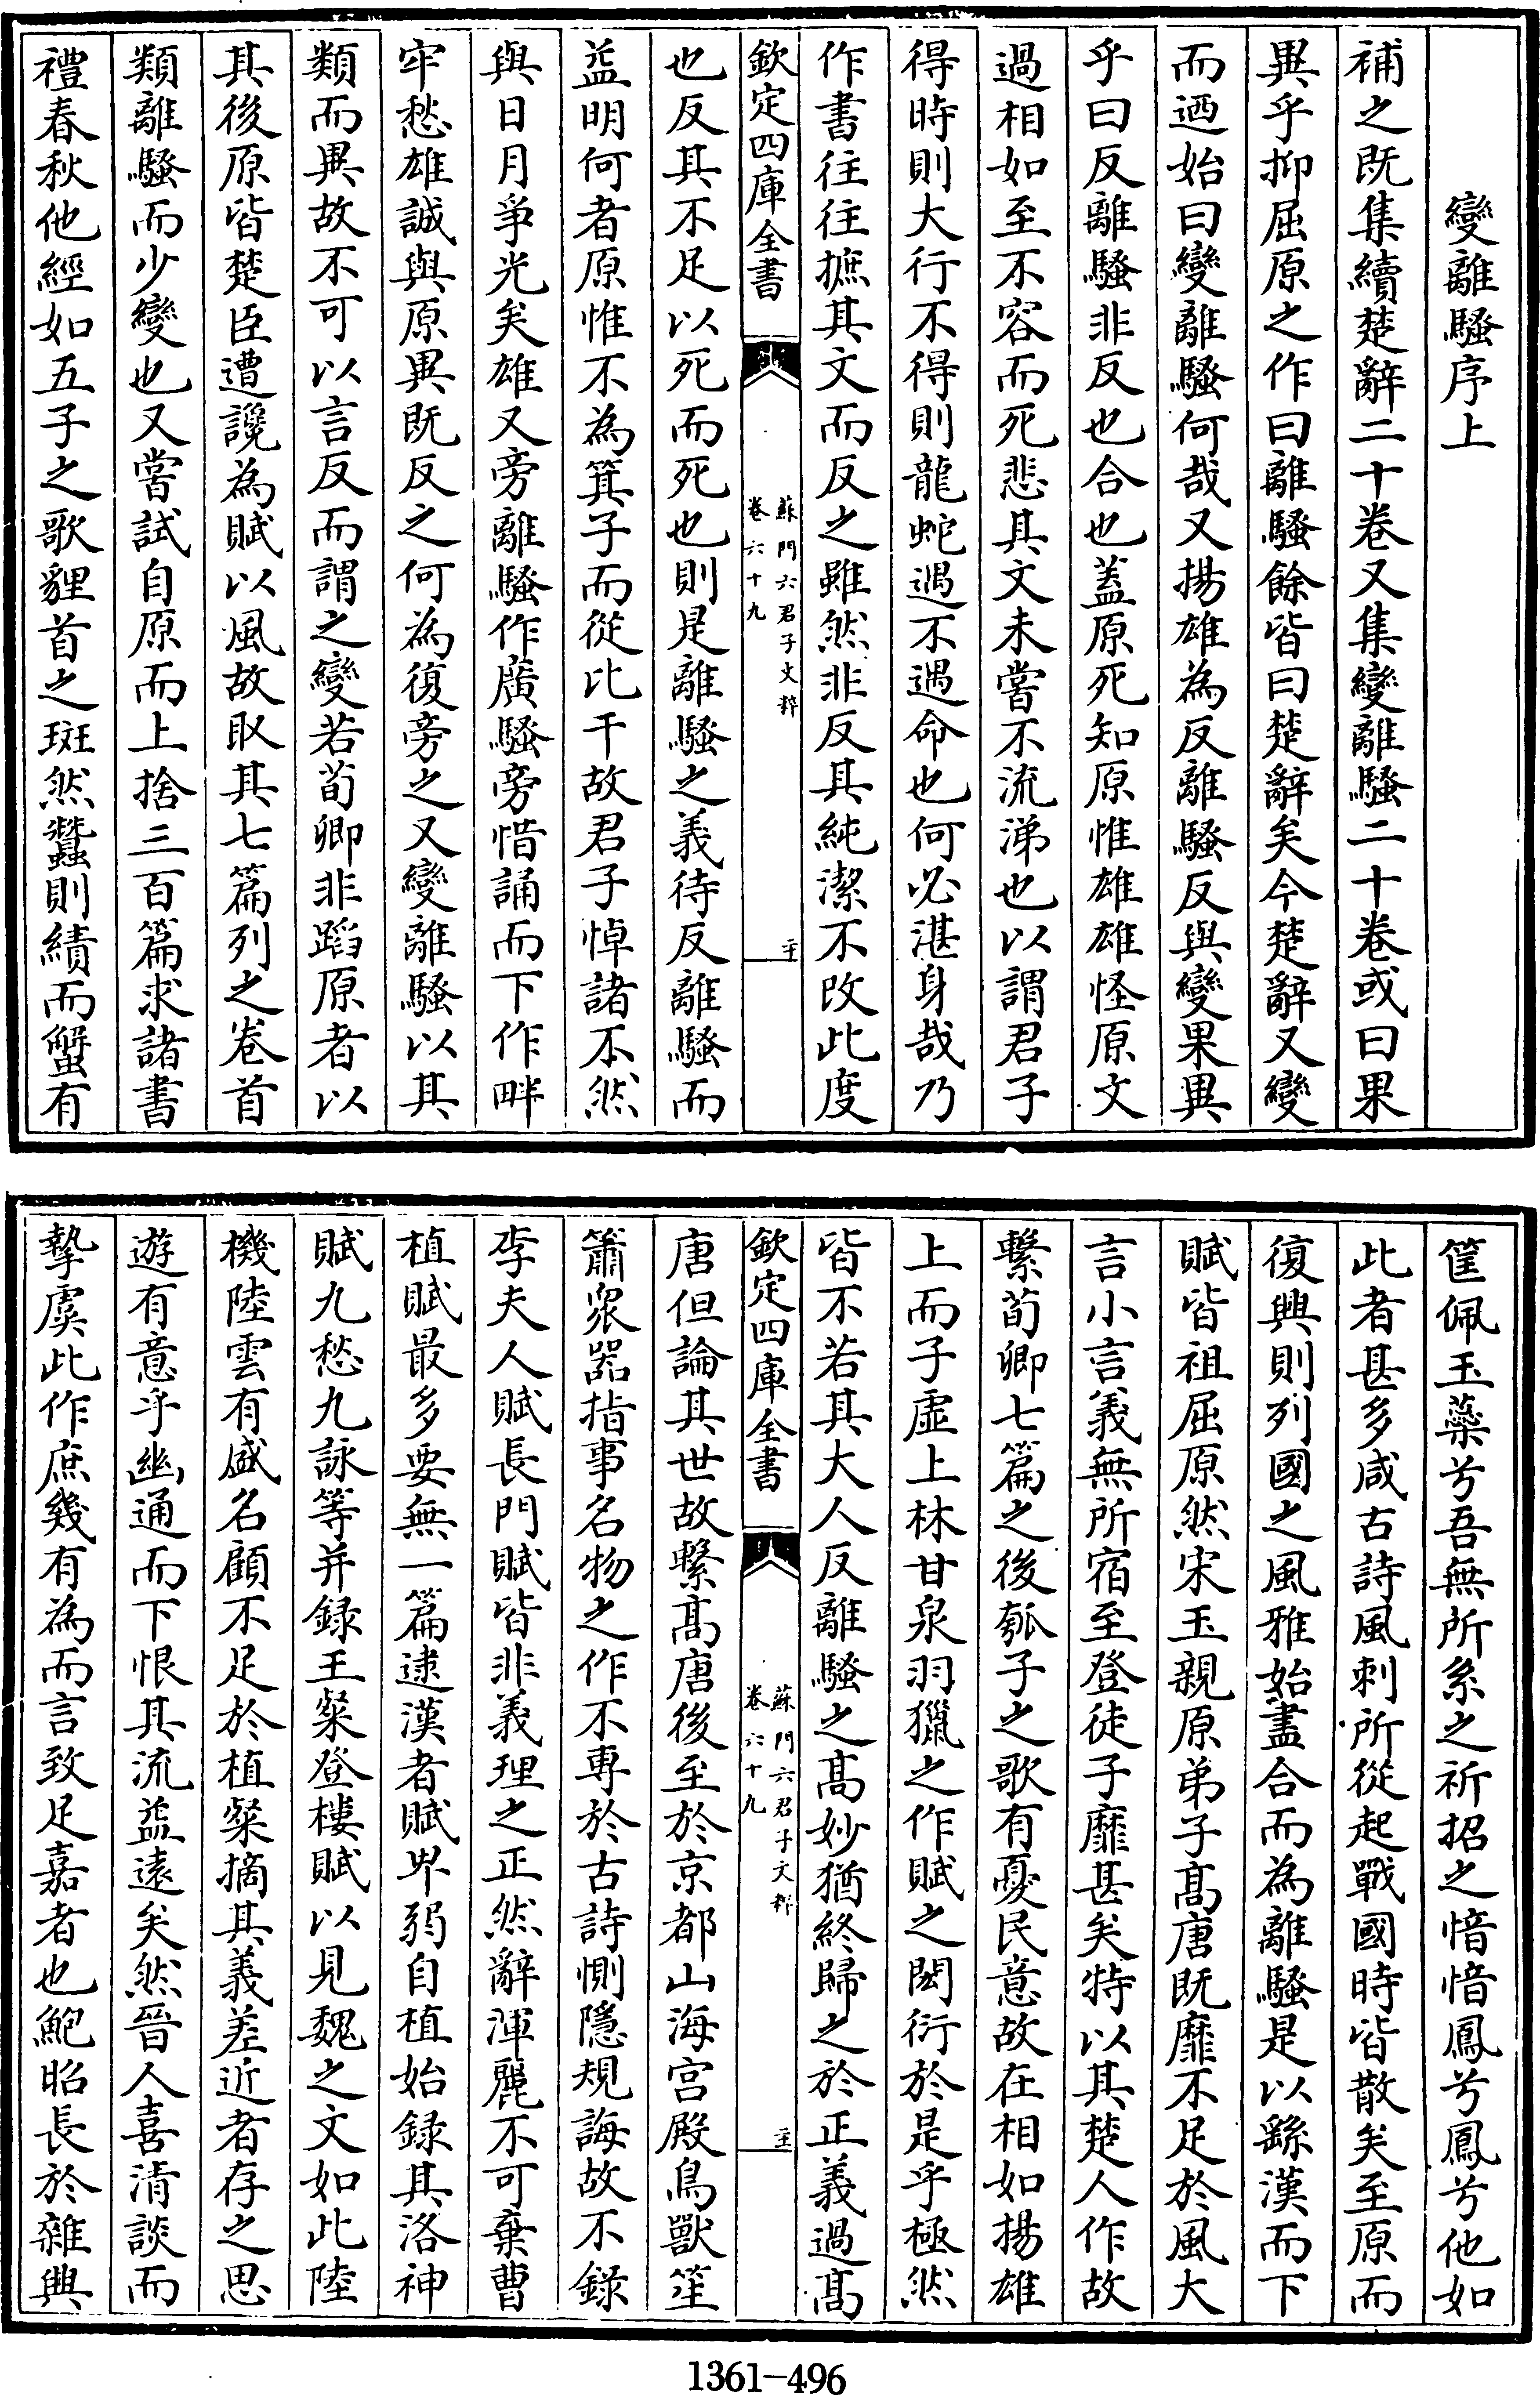 變離騷序上
補之既集續楚辭二十卷又集變離騷二十卷或曰果
異乎抑屈原之作曰離騷餘皆曰楚辭矣今楚辭又變
而迺始曰變離騷何哉又揚雄為反離騷反與變果異
乎曰反離騷非反也合也蓋原死知原惟雄雄怪原文
過相如至不容而死悲其文未嘗不流涕也以謂君子
得時則大行不得則龍蛇遇不遇命也何必湛身哉乃
作書往往摭其文而反之雖然非反其純潔不改此度
欽定四庫全書
蘇門六君子文粹
卷六十九
二十
也反其不足以死而死也則是離騷之義待反離騷而
益明何者原惟不為箕子而從比干故君子悼諸不然
與日月爭光矣雄又旁離騷作廣騷旁惜誦而下作畔
牢愁雄誠與原異既反之何為復旁之又變離騷以其
類而異故不可以言反而謂之變若荀卿非蹈原者以
其後原皆楚臣遭讒為賦以風故取其七篇列之卷首
類離騷而少變也又嘗試自原而上捨三百篇求諸書
禮春秋他經如五子之歌貍首之斑然蠶則績而蟹有
筐佩玉蘂兮吾無所系之祈招之愔愔鳳兮鳳兮他如
此者甚多咸古詩風刺所從起戰國時皆散矣至原而
復興則列國之風雅始盡合而為離騷是以繇漢而下
賦皆祖屈原然宋玉親原弟子髙唐既靡不足於風大
言小言義無所宿至登徒子靡甚矣特以其楚人作故
繫荀卿七篇之後瓠子之歌有憂民意故在相如揚雄
上而子虛上林甘泉羽獵之作賦之閎衍於是乎極然
皆不若其大人反離騷之髙妙猶終歸之於正義過髙
欽定四庫全書
蘇門六君子文粹
卷六十九
唐但論其世故繫髙唐後至於京都山海宮殿鳥獸笙
簫衆器指事名物之作不專於古詩惻隱規誨故不錄
李夫人賦長門賦皆非義理之正然辭渾麗不可棄曹
植賦最多要無一篇逮漢者賦卑弱自植始録其洛神
賦九愁九詠等并録王粲登樓賦以見魏之文如此陸
機陸雲有盛名顧不足於植粲摘其義差近者存之思
遊有意乎幽通而下恨其流益遠矣然晉人喜清談而
摯虞此作庶幾有為而言致足嘉者也鮑昭長於雜興
1361-496